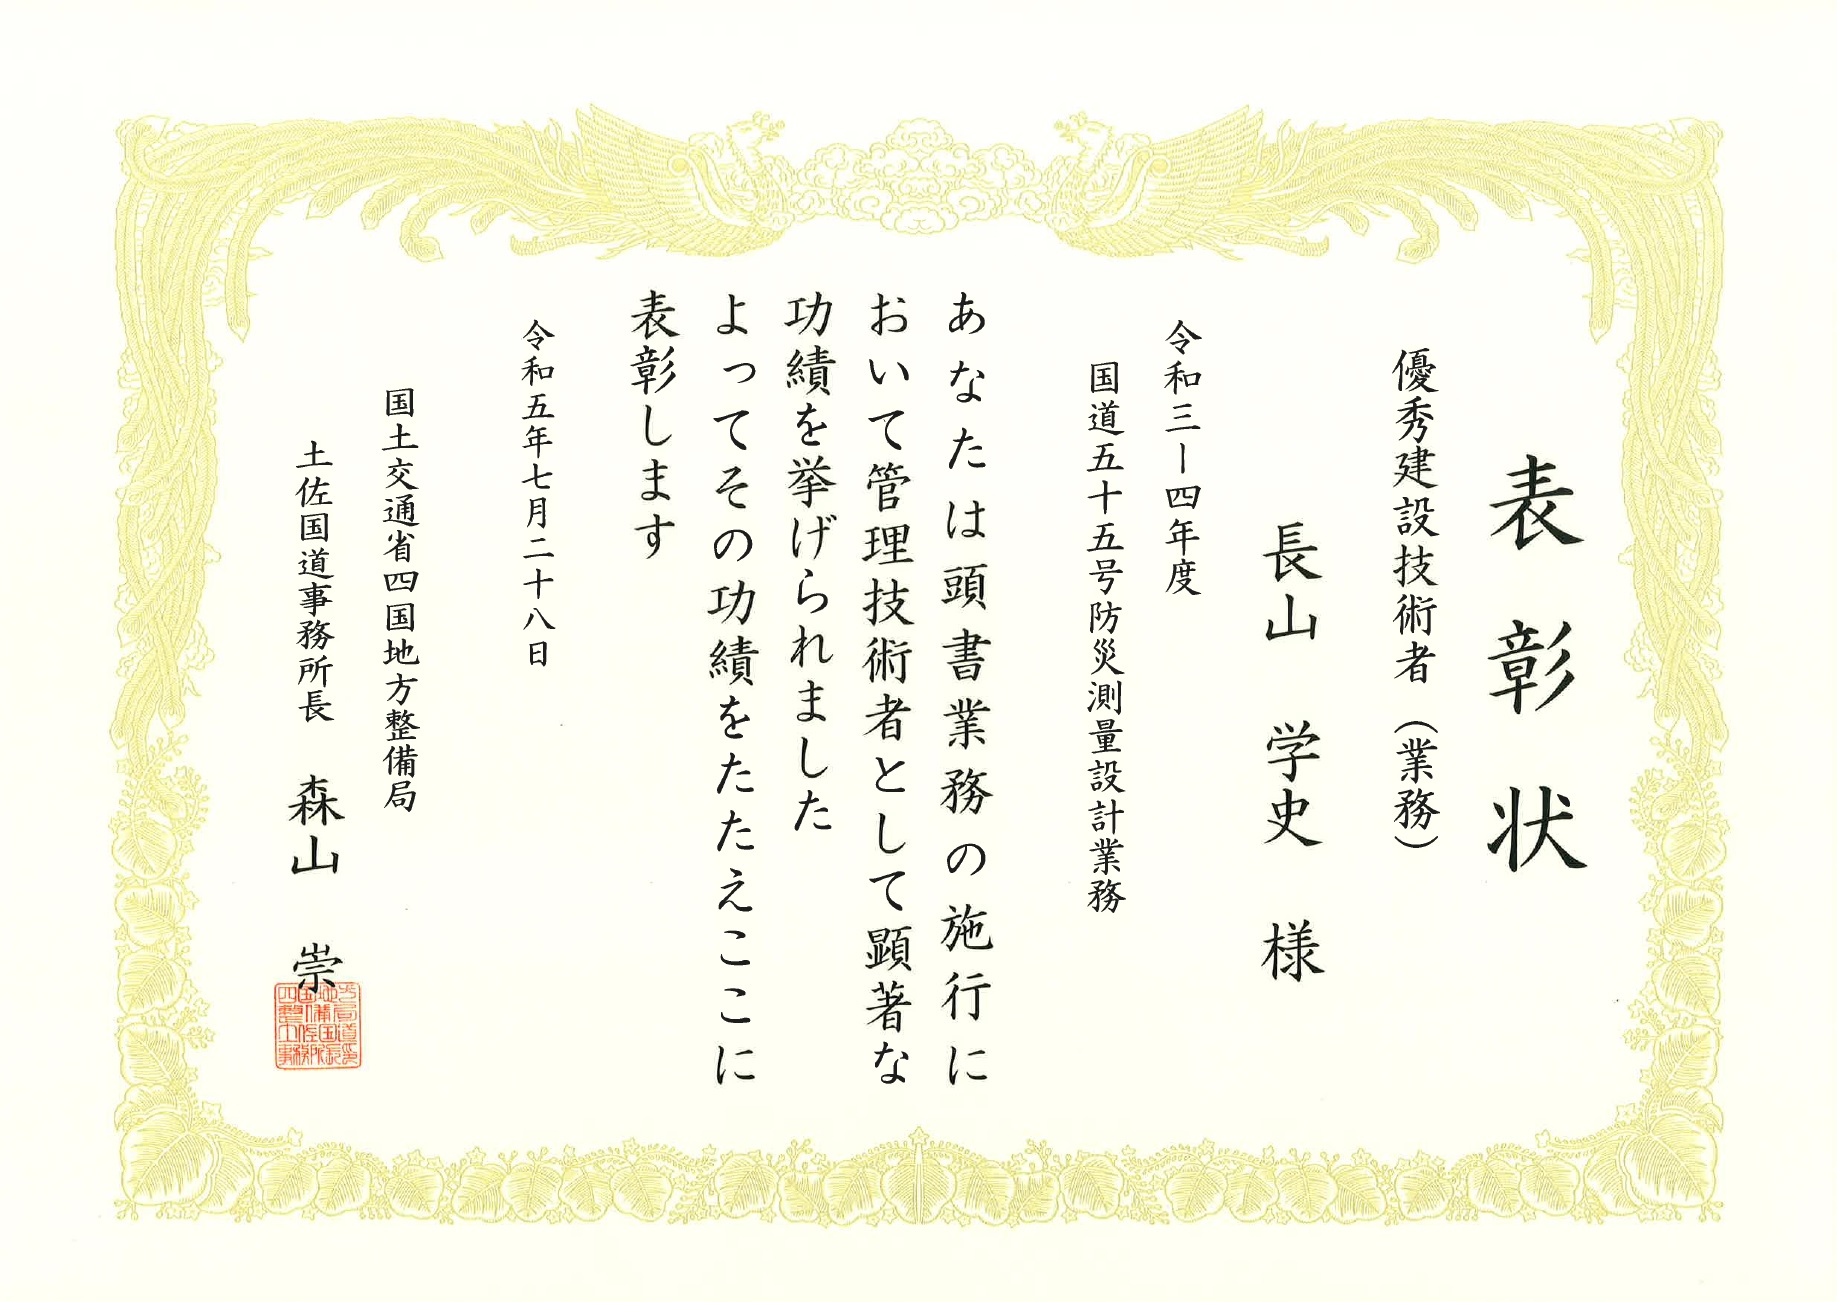 表彰状
優秀建設技術者（業務）
長山　学史　様
令和三ー四年度
国道五十五号防災測量設計業務
あなたは頭書業務の施行に
おいて管理技術者として顕著な
功績を挙げられました
よってその功績をたたえここに
表彰します
令和五年七月二十八日
国土交通省四国地方整備局
土佐国道事務所長　森山　崇